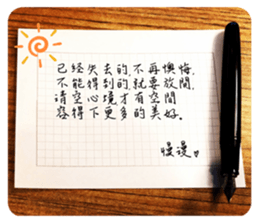 已经失去的,不再懊悔,
不能得到的,就要放開,
请空心境才有空間
容得下更多的美好.
慢漫